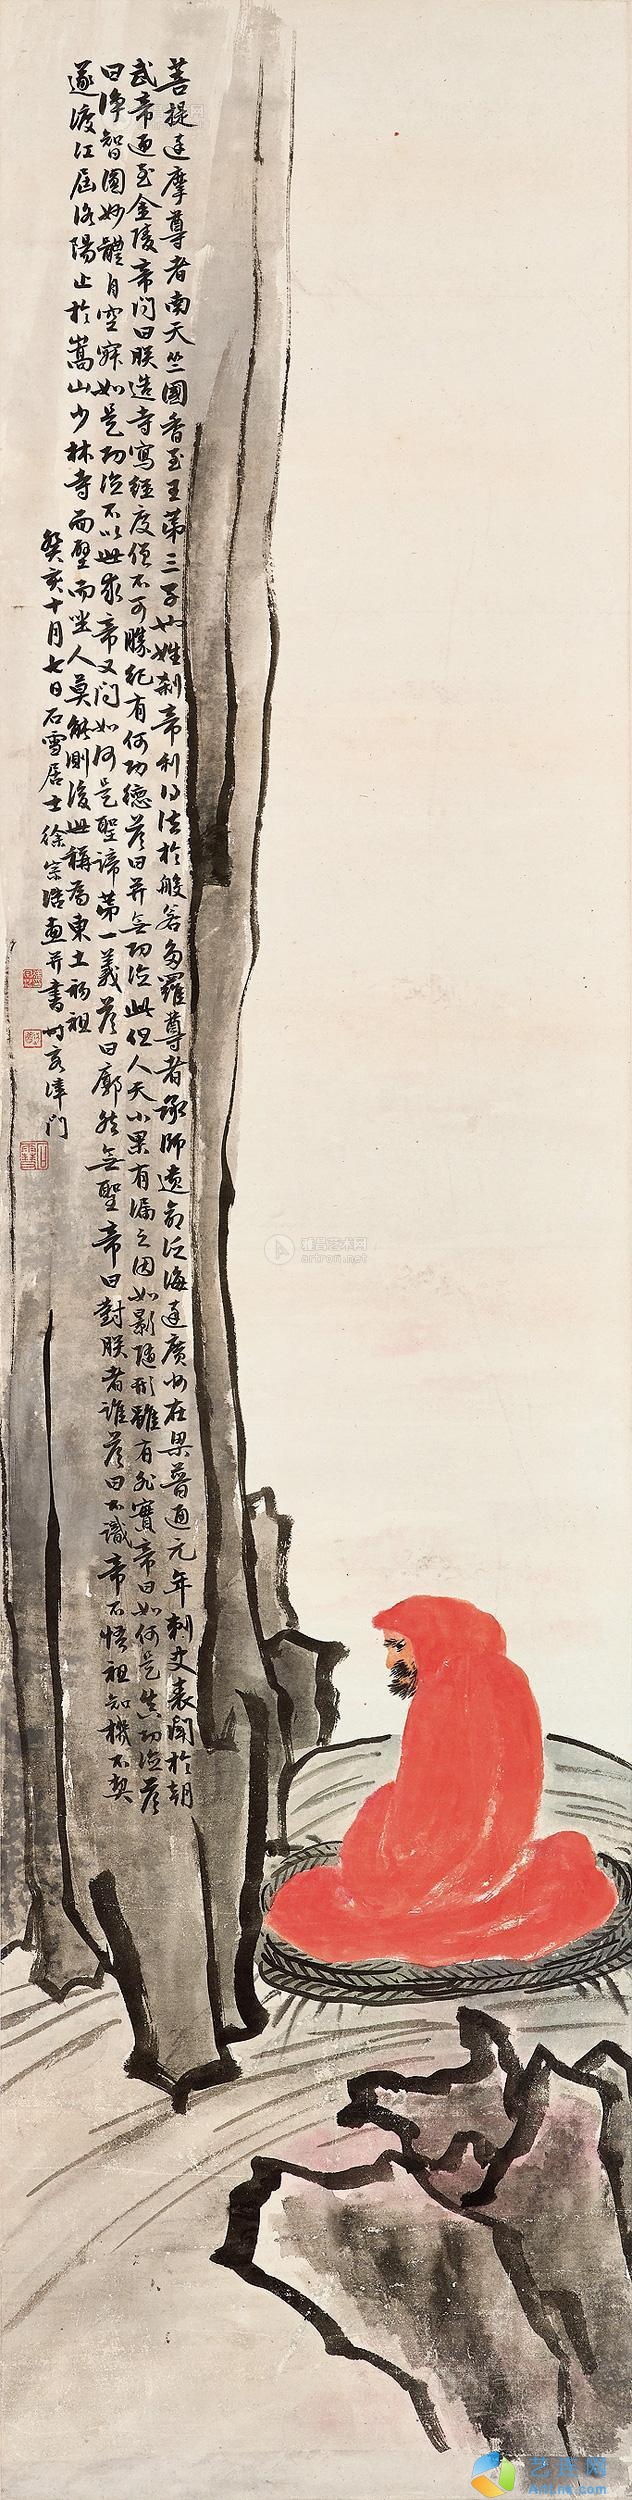 菩提達摩尊者南天竺國香至王第三子也姓剎帝利得法於般若多羅尊者承師遺命泛海達廣州在梁普通元年刺史表聞於朝
武帝迎至金陵帝問曰朕造寺寫經度僧不可勝紀有何功德荅曰並無功德此但人天小果有漏之因如影隨形雖有非實帝曰如何是真功德荅
曰淨智圓妙體自空寂如是功德不以世求帝又問如何是聖諦第一義荅曰廓然無聖帝曰對朕者誰荅曰不識帝不悟祖知機不契
遂渡江屆洛陽止於嵩山少林寺面壁而坐人莫能測後世稱為東土初祖
癸亥十月七日石雪居士徐宗浩畫并書時客津門
雅昌艺术网
artron.net